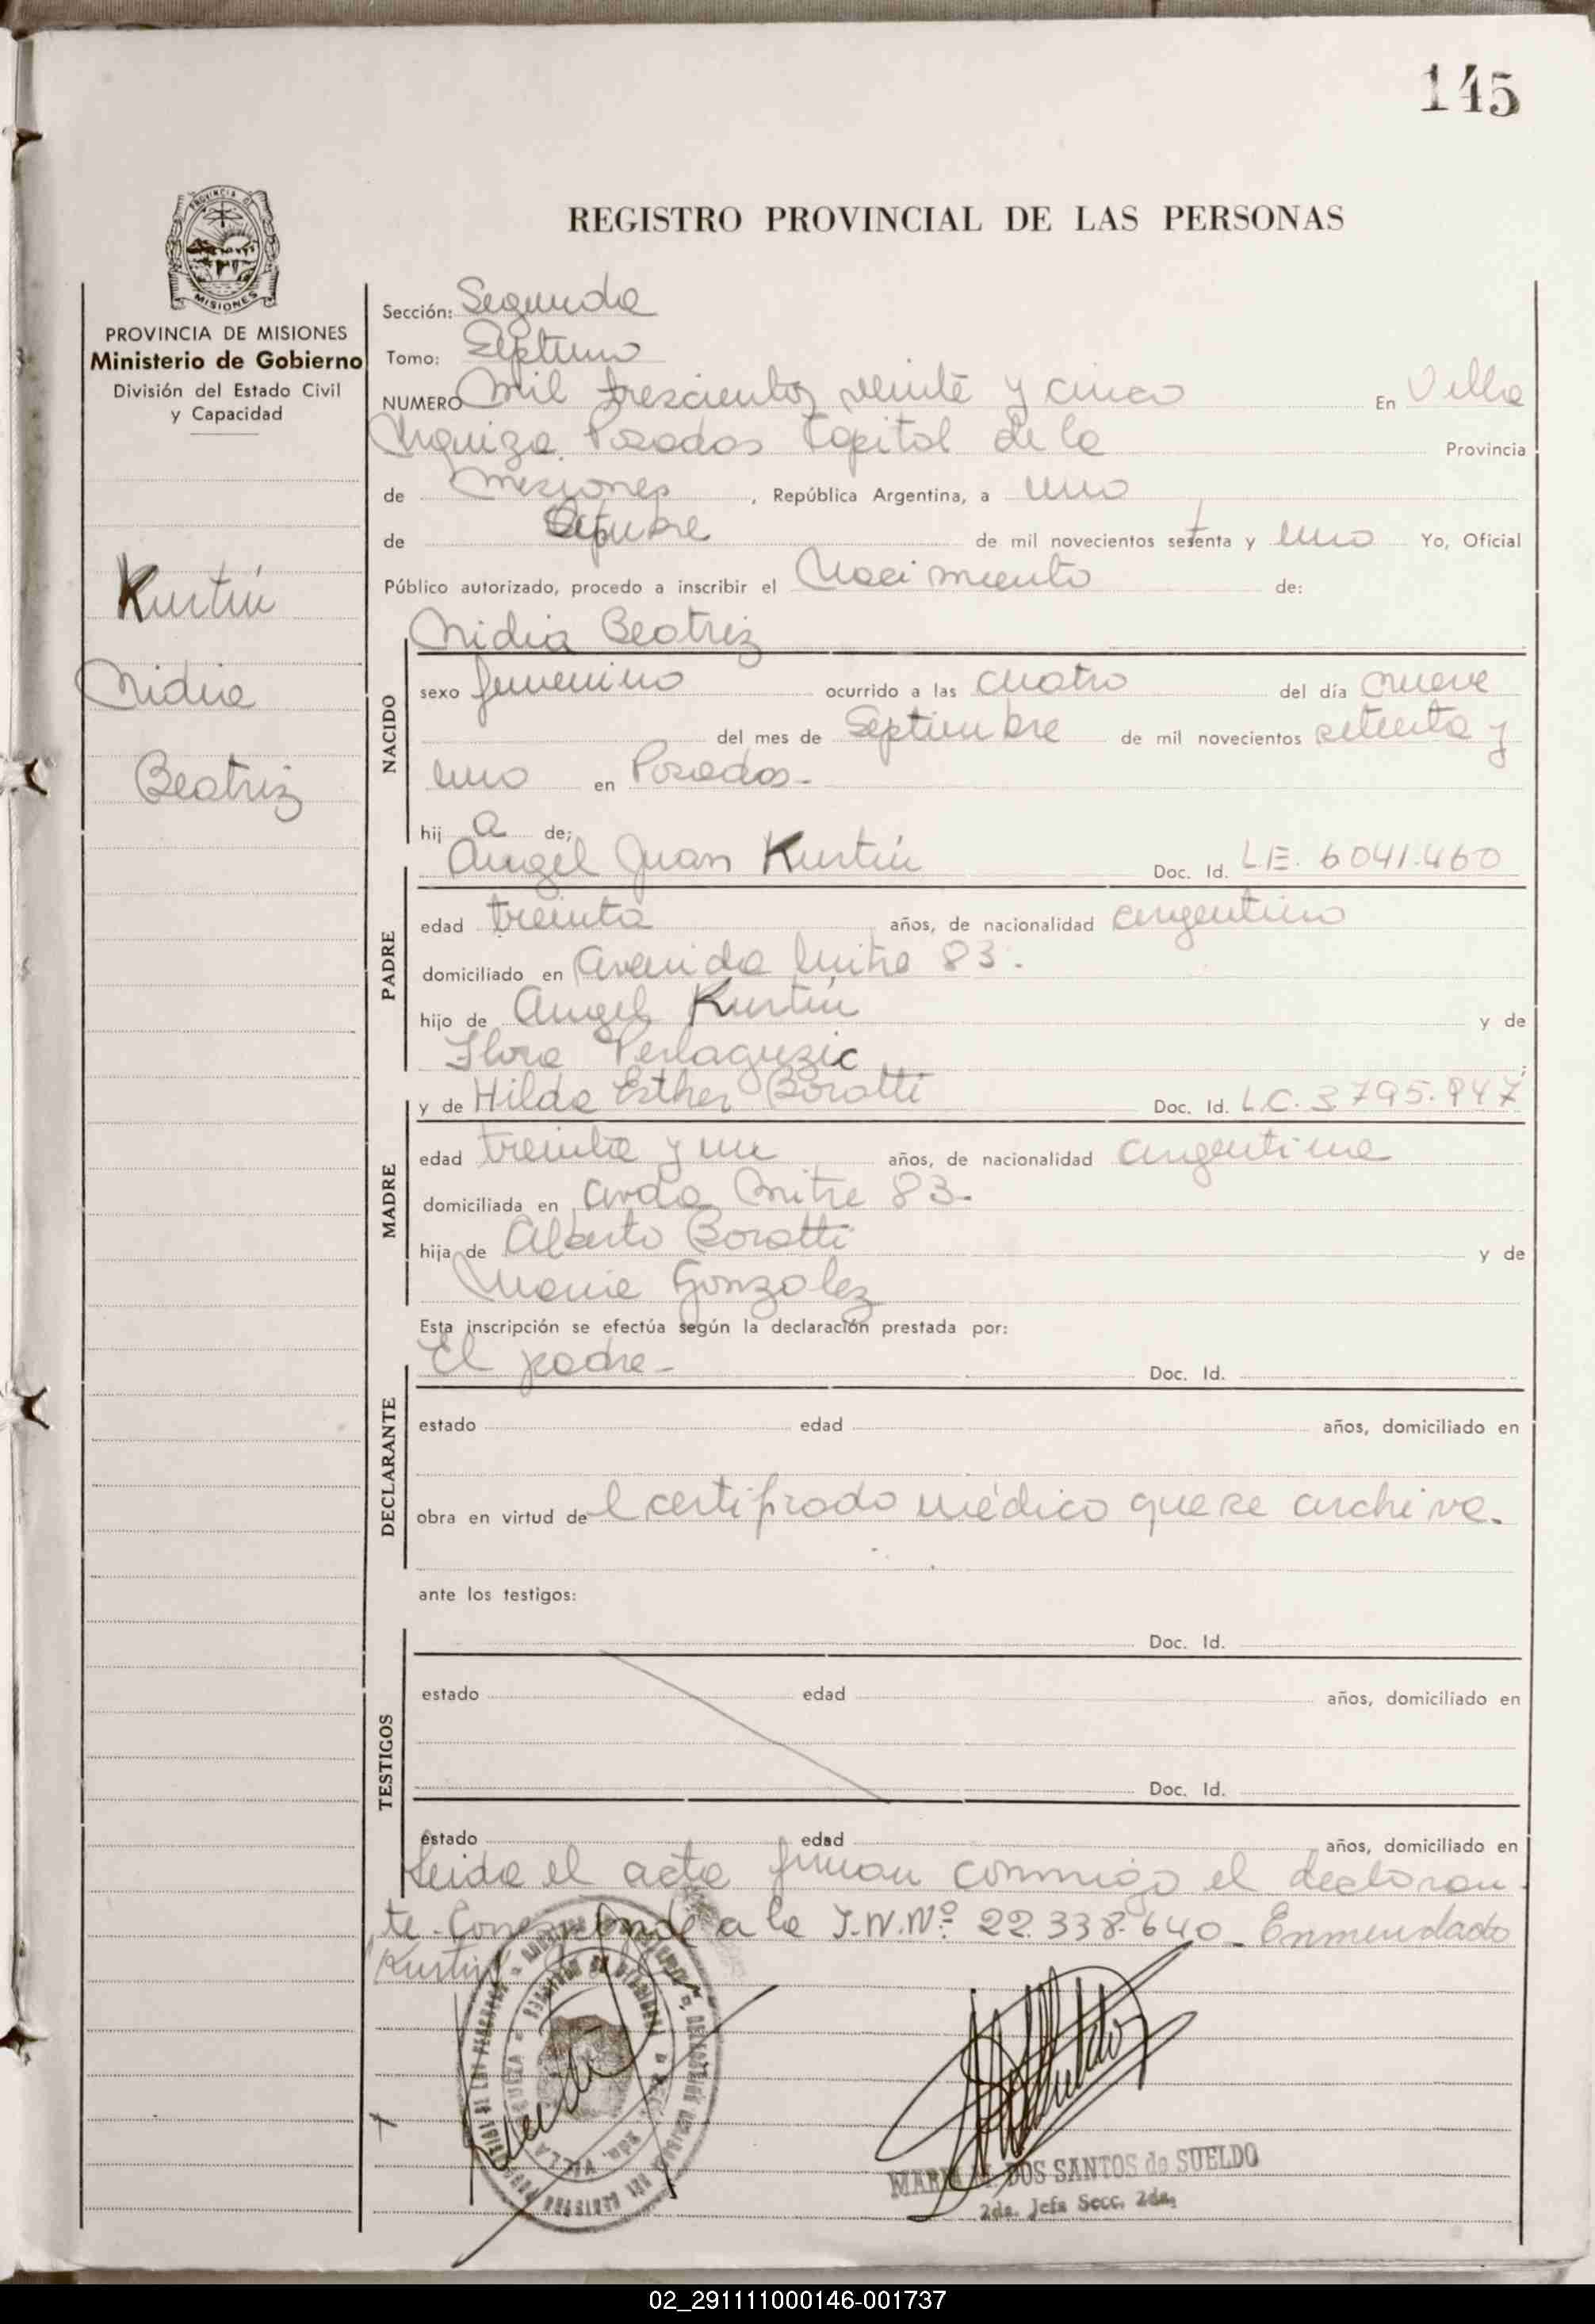 145
REGISTRO PROVINCIAL DE LAS PERSONAS
PROVINCIA DE MISIONES
Ministerio de Gobierno
División del Estado Civil
y Capacidad
Kurtin
Nidia
Beatriz
Sección: Segunda
Tomo: Séptimo
NUMERO Mil trescientos veinte y cinco En Villa
Urquiza. Posadas Capital de la Provincia
de Misiones, República Argentina, a uno
de Octubre de mil novecientos setenta y uno Yo, Oficial
Público autorizado, procedo a inscribir el Nacimiento de:
Nidia Beatriz
NACIDO
sexo femenino ocurrido a las cuatro del día nueve
del mes de Septiembre de mil novecientos setenta y
uno en Posadas-
hij a de;
Angel Juan Kurtin Doc. Id. L.E. 6041.460
PADRE
edad treinta años, de nacionalidad argentino
domiciliado en Avenida Mitre 83.
hijo de Angel Kurtin y de
Flora
y de Hilda Esther Boratti Doc. Id. L.C. 3795.947
MADRE
edad treinta y un años, de nacionalidad argentina
domiciliada en Avda Mitre 83-
hija de Alberto Boratti y de
Maria Gonzalez
Esta inscripción se efectúa según la declaración prestada por:
El padre- Doc. Id.
DECLARANTE
estado edad años, domiciliado en
obra en virtud de l certificado médico que se archiva.
ante los testigos:
Doc. Id.
TESTIGOS
estado edad años, domiciliado en
Doc. Id.
estado edad años, domiciliado en
Leida el acta firman conmigo el declaran-
te. Corresponde a la I.N.Nº 22.338.640_ Enmendado
Kurtin
MARIA DOS SANTOS de SUELDO
2da. Jefa Secc. 2da.
02_291111000146-001737